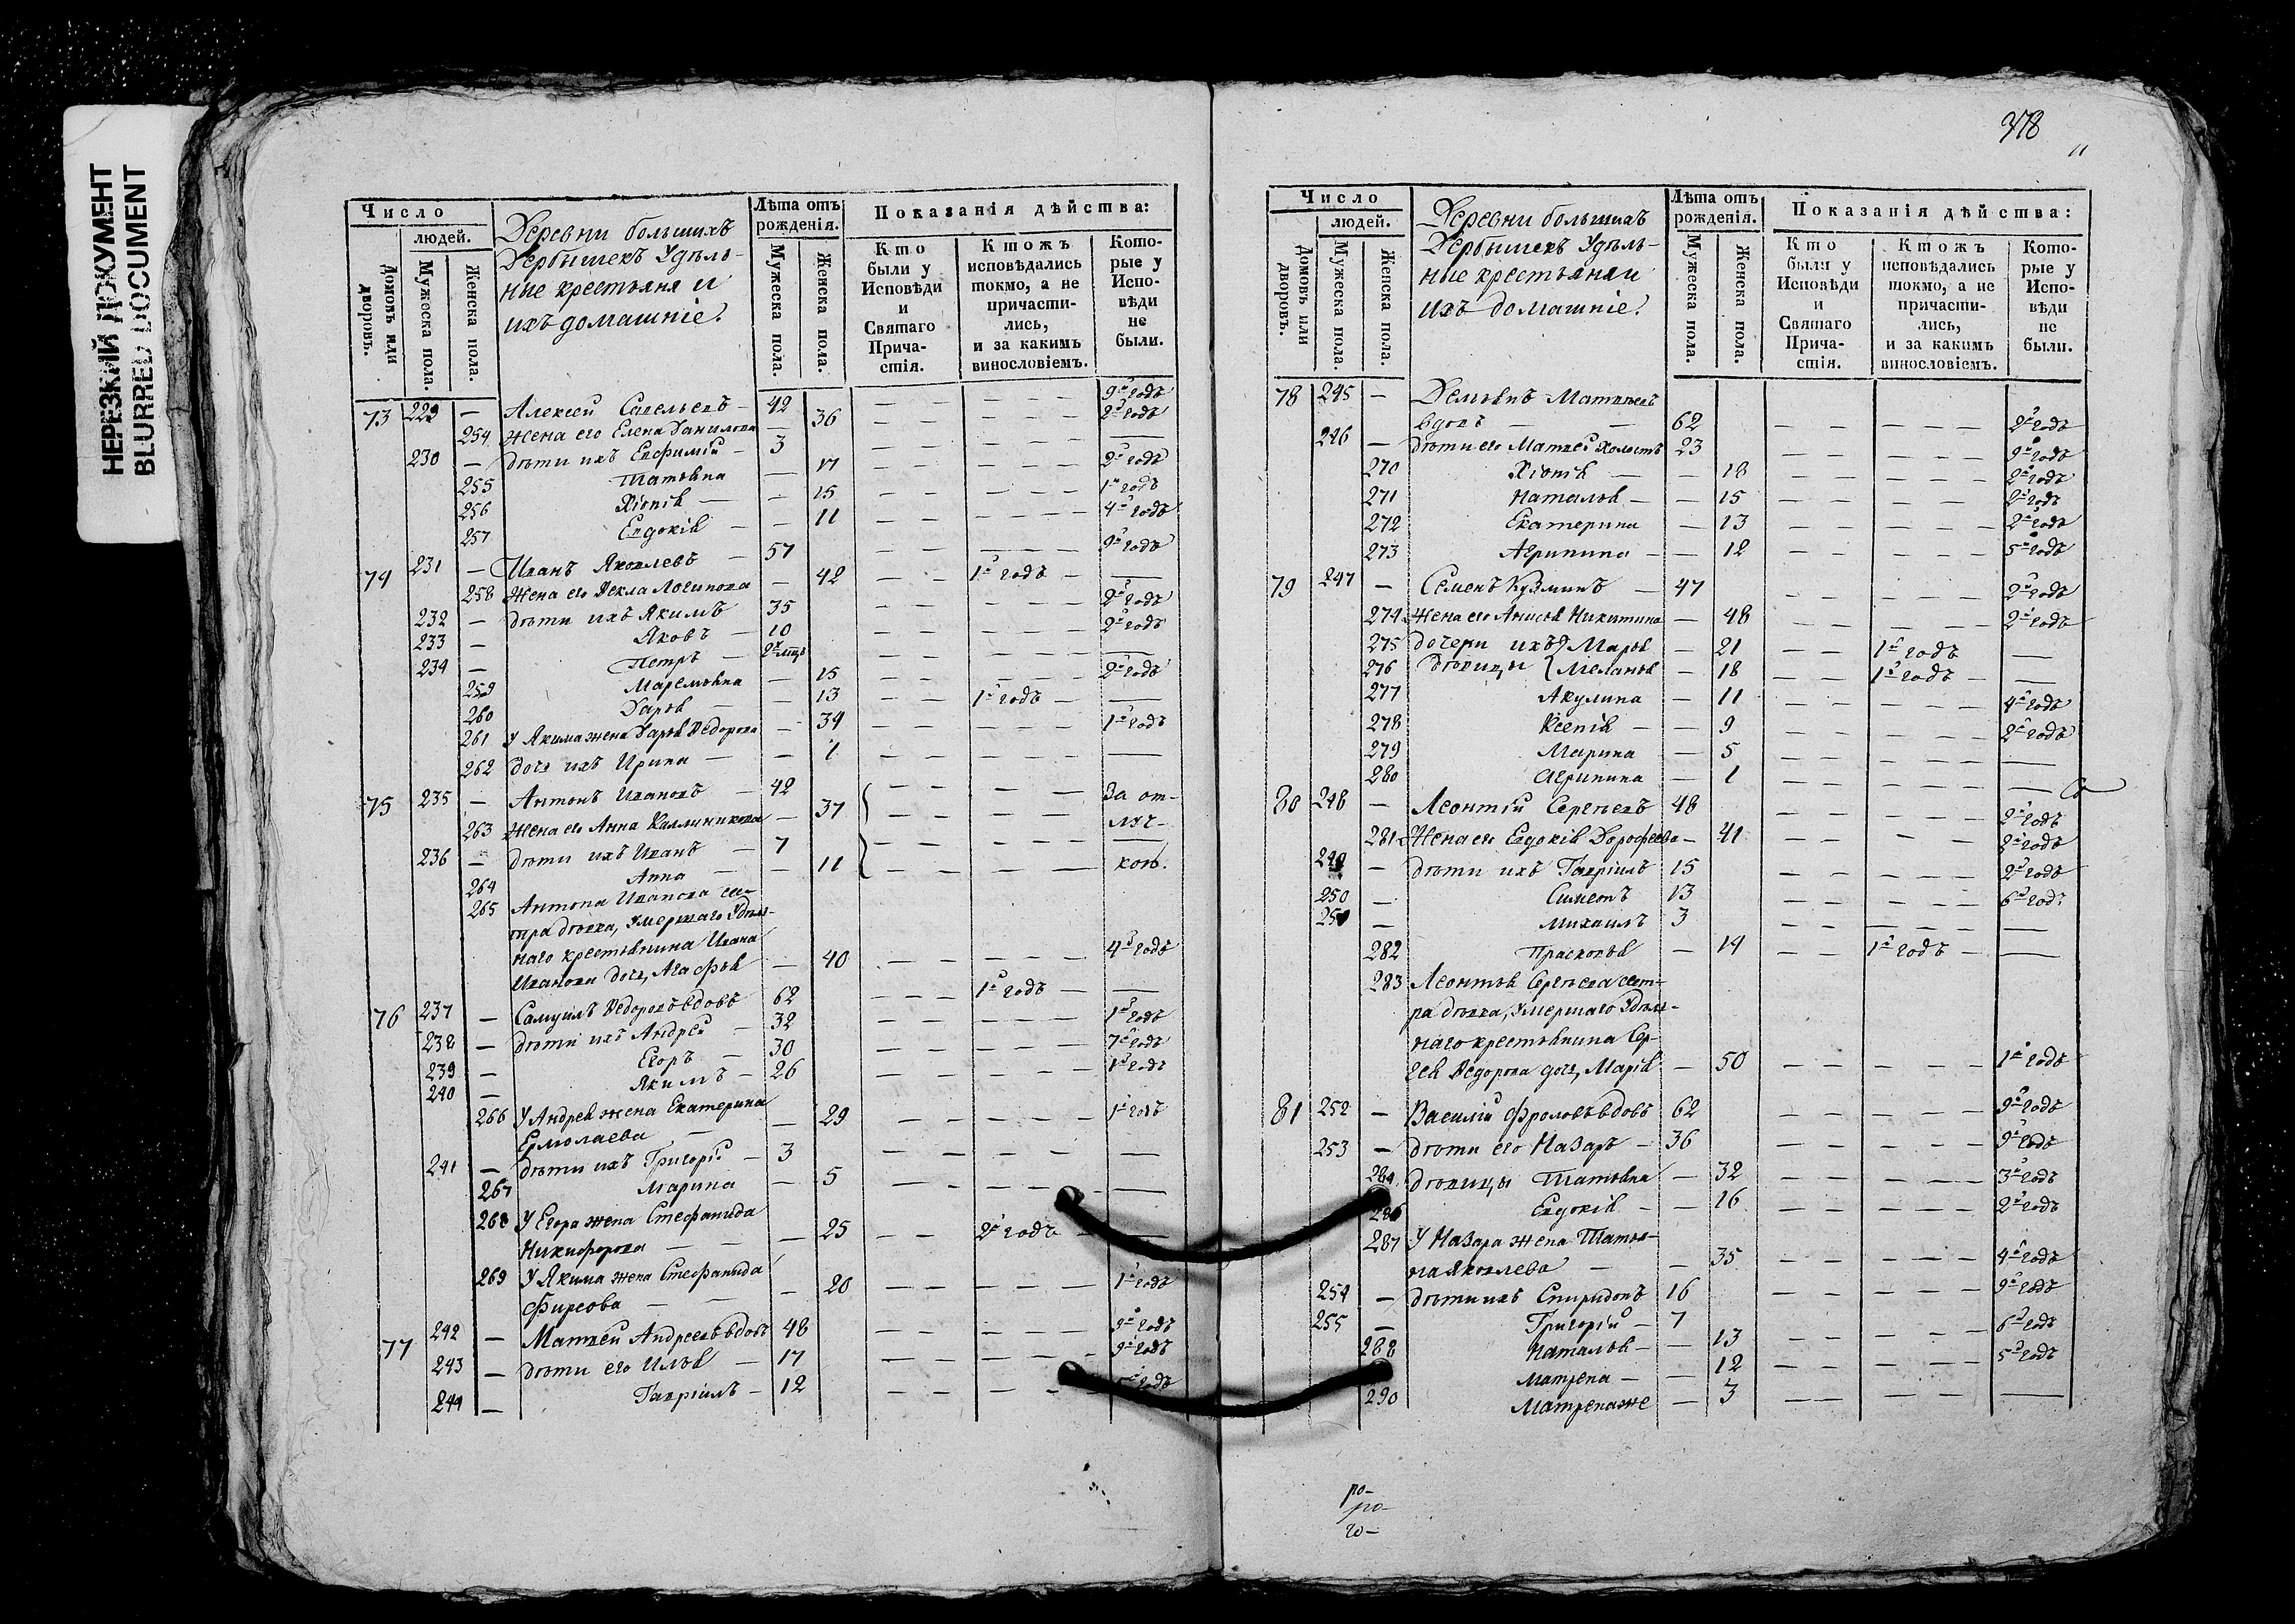 НЕРЕЗКИЙ ДОКУМЕНТ
BLURRED DOCUMENT
Число
людей.
Домовъ или дворовъ.
Мужеска пола.
Женска пола.
Деревни большихъ
Дербышекъ Удѣль-
ные крестьяня и
ихъ домашніе.
Лѣта отъ рожденія.
Мужеска пола.
Женска пола.
Показанія дѣйства:
Кто были у Исповѣди и Святаго Прича- стія.
Ктожъ исповѣдались токмо, а не причасти- лись, и за какимъ винословіемъ.
Кото- рые у Испо- вѣди не были.
73 229 — Алексей Савельевъ — 42 — — — — — 9й годъ
254 жена его Елена Данилова — 36 — — — — — 2й годъ
230 — дѣти ихъ Евфимій — 3 — —
255 Татьяна — 17 — — — — — 2й годъ
256 Хіонія — — 15 — — — — — 1й годъ
257 Евдокія — — 11 — — — — — 4й годъ
74 231 — Иванъ Яковлевъ — 57 — — — — — 9й годъ
258 Жена его Векла Логинова — 42 — — 1й годъ — —
232 — дѣти ихъ Якимъ 35 — — — — — 2й годъ
233 — Яковъ — 10 — — — — — 2й годъ
234 — Петръ — 2х мцъ — — — — — —
259 Маремьяна — 15 — — — — — 2й годъ
260 Дарья — — 13 — — 1й годъ — —
261 У Якима жена Дарья Ѳедорова — 34 — — — — — 1й годъ
262 дочь ихъ Ирина — — 1 — — — — — —
75 235 — Антонъ Ивановъ — 42 — — — — За от-
263 Жена его Анна Каллиникова — 37 — — — — — луч-
236 — дѣти ихъ Иванъ — 7 — — — — — —
264 Анна — — 11 — — — — — кою.
265 Антона Иванова сес-
тра дѣвка, умершаго Удѣль-
наго крестьянина Ивана
Иванова дочь, Агафья — 40 — — — — — 4й годъ
76 237 — Самуилъ Ѳедоровъ вдовъ 62 — — — 1й годъ — —
238 — дѣти ихъ Андрей — 32 — — — — — 1й годъ
239 — Егоръ — 30 — — — — — 7й годъ
240 — Якимъ — 26 — — — — — 1й годъ
266 У Андрея жена Екатерина
Ермолаева — — 29 — — — — — 1й годъ
241 — дѣти ихъ Григорій — 3 — — — — — —
267 Марина — 5 — — — — — —
268 У Егора жена Стефанида
Никифорова — — — 25 — — 2й годъ — —
269 У Якима жена Стефанида
Фирсова — — — 20 — — — — — 1й годъ
77 242 — Матвей Андреевъ вдовъ 48 — — — — — 9й годъ
243 — дѣти его Илья — 17 — — — — — 9й годъ
244 — Гавріилъ — 12 — — — — годъ
378
11
Число
людей.
Домовъ или дворовъ.
Мужеска пола.
Женска пола.
Деревни большихъ
Дербышекъ Удѣль-
ные крестьяня и
ихъ домашніе.
Лѣта отъ рожденія.
Мужеска пола.
Женска пола.
Показанія дѣйства:
Кто были у Исповѣди и Святаго Прича- стія.
Ктожъ исповѣдались токмо, а не причасти- лись, и за какимъ винословіемъ.
Кото- рые у Испо- вѣди не были.
78 245 — Демьянъ Матвеевъ
вдовъ — — 62 — — — — — 2й годъ
246 — дѣти его Матвей холостъ 23 — — — — — 9й годъ
270 Хіонія — — 18 — — — — — 2й годъ
271 Наталья — — 15 — — — — — 2й годъ
272 Екатерина — 13 — — — — — 2й годъ
273 Агрипина — — 12 — — — — — 5й годъ
79 247 — Семенъ Кузминъ — 47 — — — — — 2й годъ
274 Жена его Анисья Никитина — 48 — — — — — 2й годъ
275 дочери ихъ Марья — 21 — — 1й годъ —
276 дѣвицы Меланья — 18 — — 1й годъ — —
277 Акулина — 11 — — — — — 4й годъ
278 Ксенія — — 9 — — — — — 2й годъ
279 Марина — 5 — — — — — —
280 Агрипина — 1 — — — — — —
80 248 — Леонтій Сергеевъ 48 — — — — — 2й годъ
281 Жена его Евдокія Дорофеева — 41 — — — — 2й годъ
249 — дѣти ихъ Гавріилъ 15 — — — — — 2й годъ
250 — Симеонъ 13 — — — — — 6й годъ
251 — Михаилъ 3 — — — — — —
282 Прасковья — 14 — — 1й годъ — —
283 Леонтья Сергеева сест-
ра дѣвка, умершаго Удѣль-
наго крестьянина Сер-
гея Ѳедорова дочь, Марія — 50 — — — — — 1й годъ
81 252 — Василій Фроловъ вдовъ 62 — — — — — 9й годъ
253 — дѣти его Назаръ — 36 — — — — — 9й годъ
284 дѣвицы Татьяна — 32 — — — — — 3й годъ
286 Евдокія — — 16 — — — — — 2й годъ
287 У Назара жена Татья-
на Яковлева — — 35 — — — — — 4й годъ
254 — дѣти ихъ Спиридонъ 16 — — — — — 9й годъ
255 — Григорій — 7 — — — — — 6й годъ
288 Наталья — — 13 — — — — — 5й годъ
Матрена — — 12 — — — — —
290 Матрена же — 3 — — — — —
ро-
ро-
го-